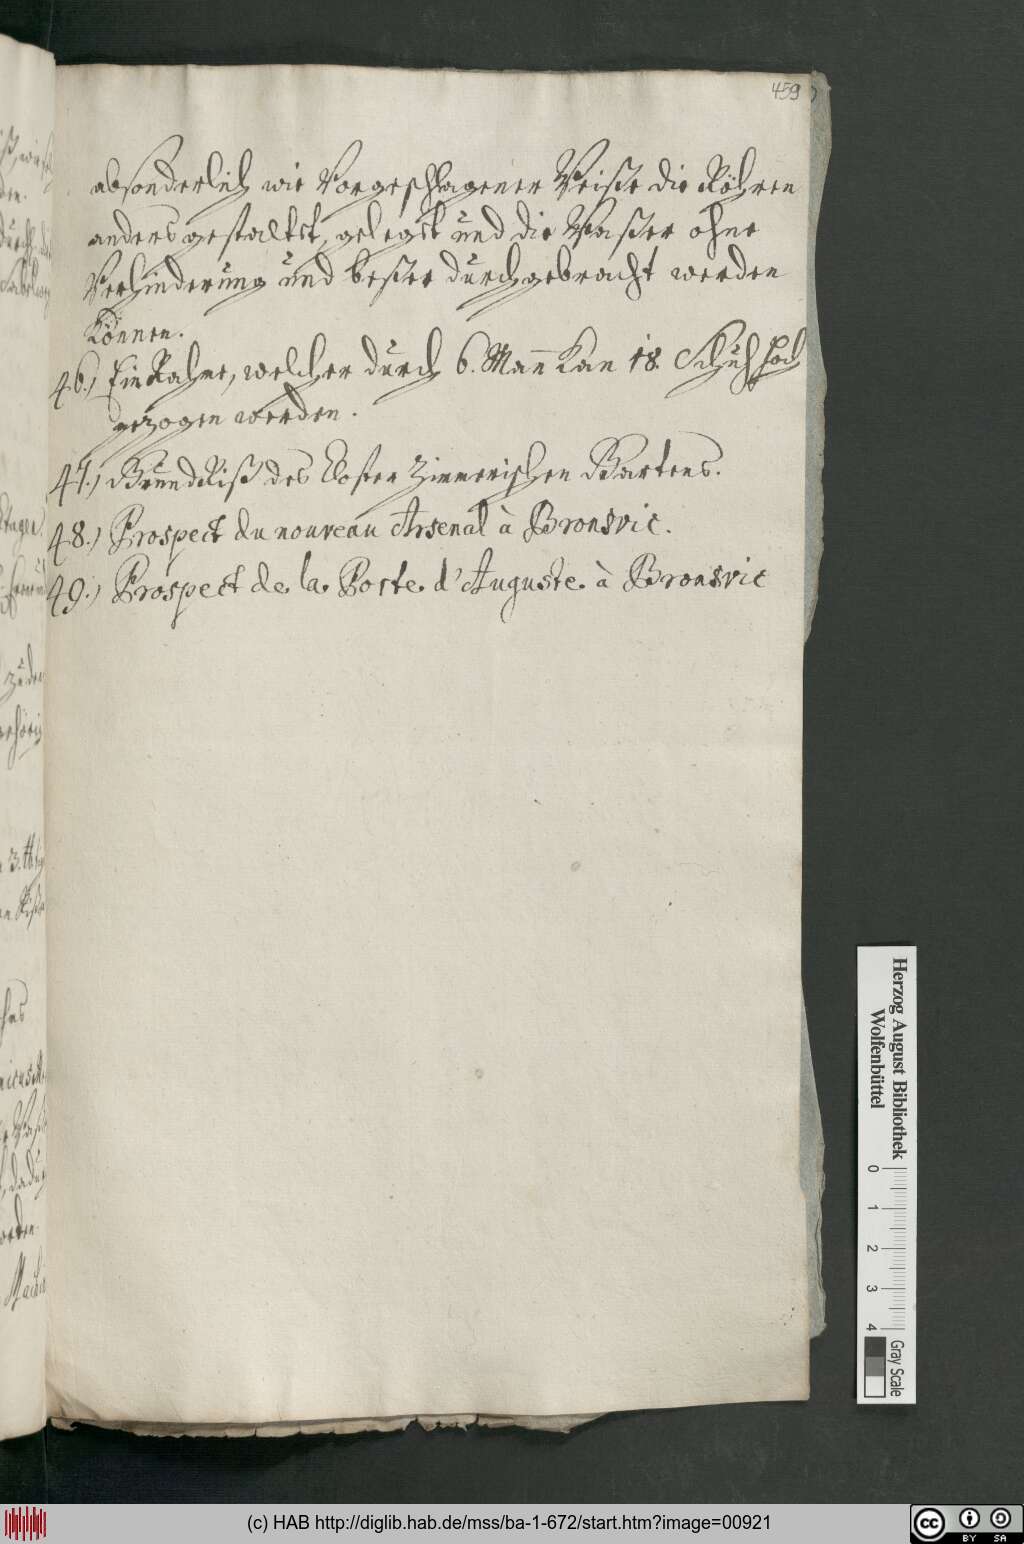 459
absonderlich wie Vorgeschlagener Weiße die Röhren
anders gestaltet, gelegt und die Waßer ohne
Verhinderung und beßer durchgebracht werden
können.
46.) Ein Rahme, welcher durch 6. Mann kan 18. Schuh hoch
gezogen werden.
47.) Grund Riß des Closter Zimmerischen Gartens.
48.) Prospect du nouveau Arsenal à Bronsvic.
49.) Prospect de la Porte d'Auguste à Bronsvic
Herzog August Bibliothek
Wolfenbüttel
0 1 2 3 4
Gray Scale
(c) HAB http://diglib.hab.de/mss/ba-1-672/start.htm?image=00921
cc BY SA